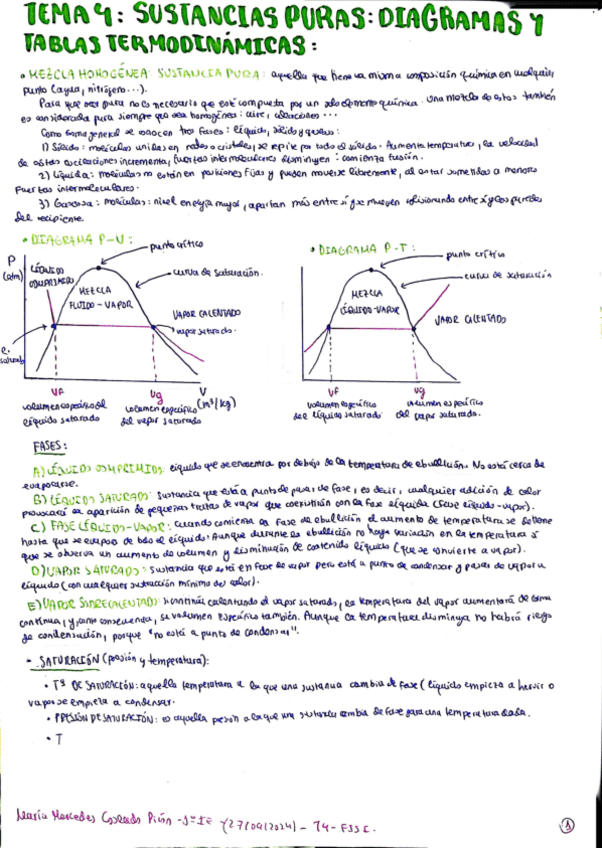 TEMA 4: SUSTANCIAS PURAS: DIAGRAMAS Y
TABLAS TERMODINÁMICAS:
• MEZCLA HOMOGÉNEA: SUSTANCIA PURA: aquella que tiene una misma composición química en cualquier
punto (agua, nitrógeno...).
Para que sea pura no es necesario que esté compuesta por un solo elemento químico. Una mezcla de estos también
es considerada pura siempre que sea homogénea: aire, aleaciones...
Como forma general se conocen tres fases: líquido, sólido y gaseoso:
1) Sólido: moléculas unidas en redes o cristales, se repite por todo el sólido. Aumenta temperatura, la velocidad
de estas oscilaciones incrementa, fuerzas intermoleculares disminuyen: comienza fusión.
2) Líquida: moléculas no están en posiciones fijas y pueden moverse libremente, al estar sometidas a menores
fuerzas intermoleculares.
3) Gaseosa: moléculas: nivel energía mayor, apartan más entre sí y se mueven colisionando entre sí y las paredes
del recipiente.
• DIAGRAMA P-V:
punto crítico
P
(atm)
LÍQUIDO
COMPRIMIDO
curva de saturación.
MEZCLA
FLUIDO-VAPOR
VAPOR CALENTADO
vapor saturado.
Vf
Vg
V
(m³/kg)
volumen específico del
líquido saturado
volumen específico
del vapor saturado
• DIAGRAMA P-T:
punto crítico
curva de saturación
MEZCLA
LÍQUIDO-VAPOR
VAPOR CALENTADO
Vf
Vg
volumen específico
del líquido saturado
volumen específico
del vapor saturado.
FASES:
A) LÍQUIDO COMPRIMIDO: líquido que se encuentra por debajo de la temperatura de ebullición. No está cerca de
evaporarse.
B) LÍQUIDO SATURADO: Sustancia que está a punto de pasar de fase, es decir, cualquier adición de calor
provocará la aparición de pequeñas trazas de vapor que coexistirán con la fase líquida (fase líquido-vapor).
C) FASE LÍQUIDO-VAPOR: Cuando comienza la fase de ebullición el aumento de temperatura se detiene
hasta que se evapora de todo el líquido. Aunque durante la ebullición no haya variación en la temperatura sí
que se observa un aumento de volumen y disminución de contenido líquido (que se convierte a vapor).
D) VAPOR SATURADO: Sustancia que está en fase de vapor pero está a punto de condensar y pasar de vapor a
líquido (con cualquier sustracción mínima del calor).
E) VAPOR SOBRECALENTADO: si continúa calentando el vapor saturado, la temperatura del vapor aumentará de forma
continua, y, como consecuencia, su volumen específico también. Aunque la temperatura disminuya no habrá riesgo
de condensación, porque "no está a punto de condensar".
- SATURACIÓN (presión y temperatura):
• Tª DE SATURACIÓN: aquella temperatura a la que una sustancia cambia de fase (líquido empieza a hervir o
vapor se empieza a condensar.
• PRESIÓN DE SATURACIÓN: es aquella presión a la que una sustancia cambia de fase para una temperatura dada.
• T
María Mercedes